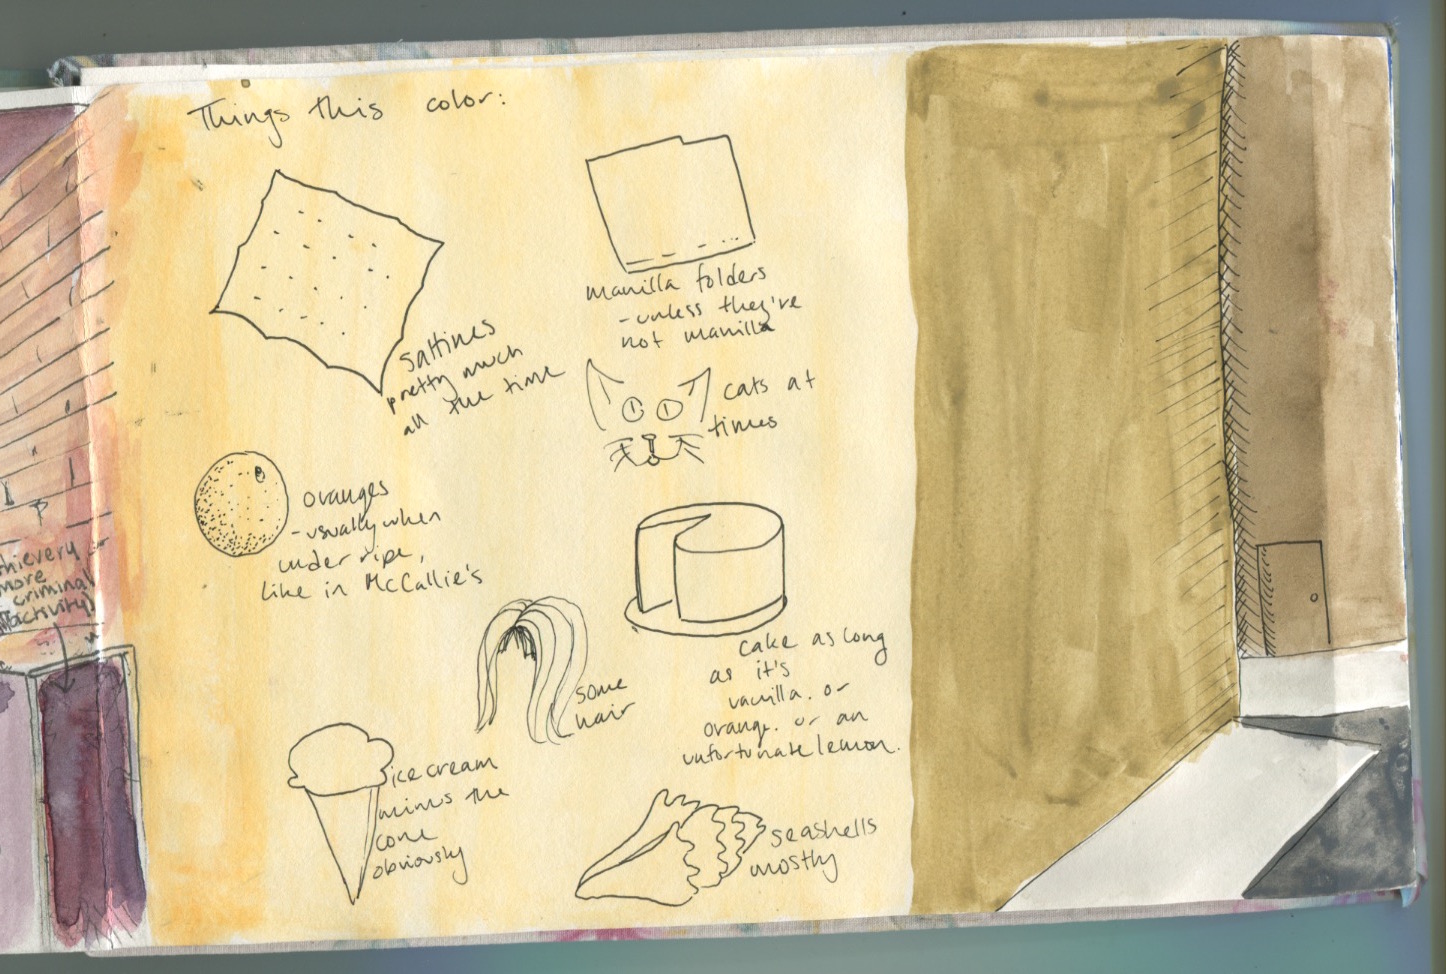 Things this color:
saltines
pretty much
all the time
manilla folders
- unless they're
not manilla
cats at
times
oranges
- usually when
under ripe,
like in McCallie's
cake as long
as it's
vanilla. or
orange. or an
unfortunate lemon.
some
hair
ice cream
minus the
cone
obviously
seashells
mostly
thievery
more
criminal
activity)